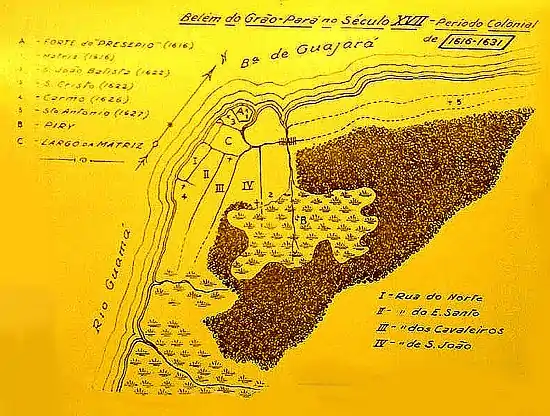 Belém do Grão-Pará no Século XVII - Período Colonial
de 1616-1631
A - FORTE do "PRESEPIO" (1616)
1 - Matriz (1616)
2 - S. João Batista (1622)
3 - S. Cristo (1622)
4 - Carmo (1626)
5 - Sto Antonio (1627)
B - PIRY
C - LARGO DA MATRIZ
N
Bª de Guajará
Rio Guamá
A
C
I
II
III
IV
4
2
5
B
I - Rua do Norte
II - " do E. Santo
III - " dos Cavaleiros
IV - " de S. João